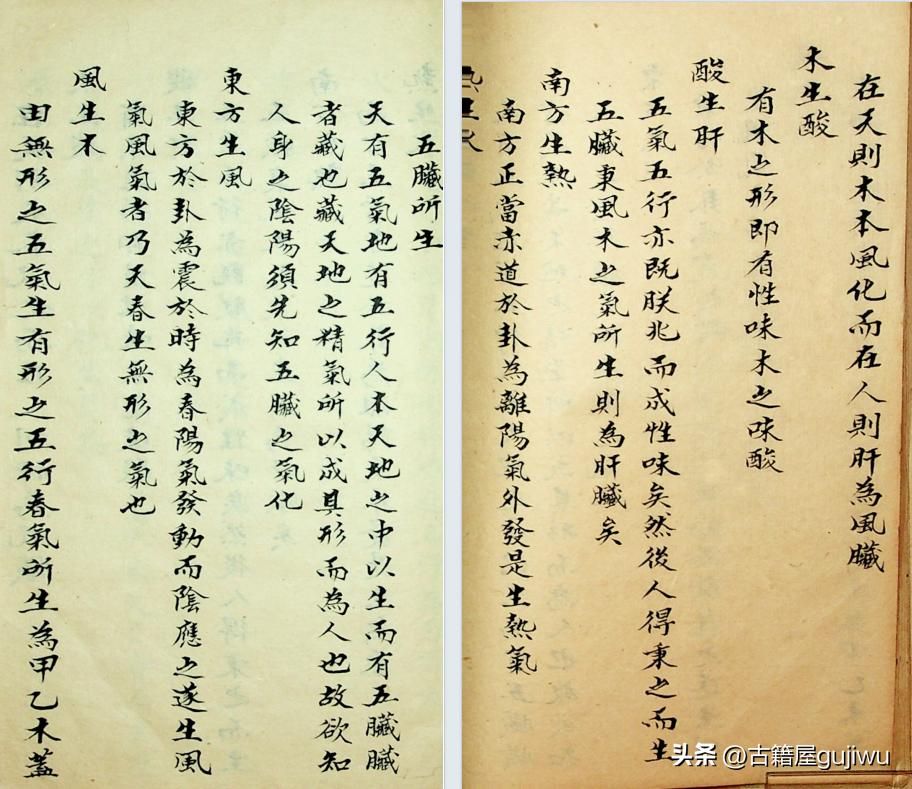 五臟所生
天有五氣地有五行人本天地之中以生而有五臟臟
者藏也藏天地之精氣所以成具形而為人也故欲知
人身之陰陽須先知五臟之氣化
東方生風
東方於卦為震於時為春陽氣發動而陰應之遂生風
氣風氣者乃天春生無形之氣也
風生木
由無形之五氣生有形之五行春氣所生為甲乙木蓋
在天則木本風化而在人則肝為風臟
木生酸
有木之形即有性味木之味酸
酸生肝
五氣五行亦既朕兆而成性味矣然後人得秉之而生
五臟秉風木之氣所生則為肝臟矣
南方生熱
南方正當赤道於卦為離陽氣外發是生熱氣
头条 @古籍屋gujiwu